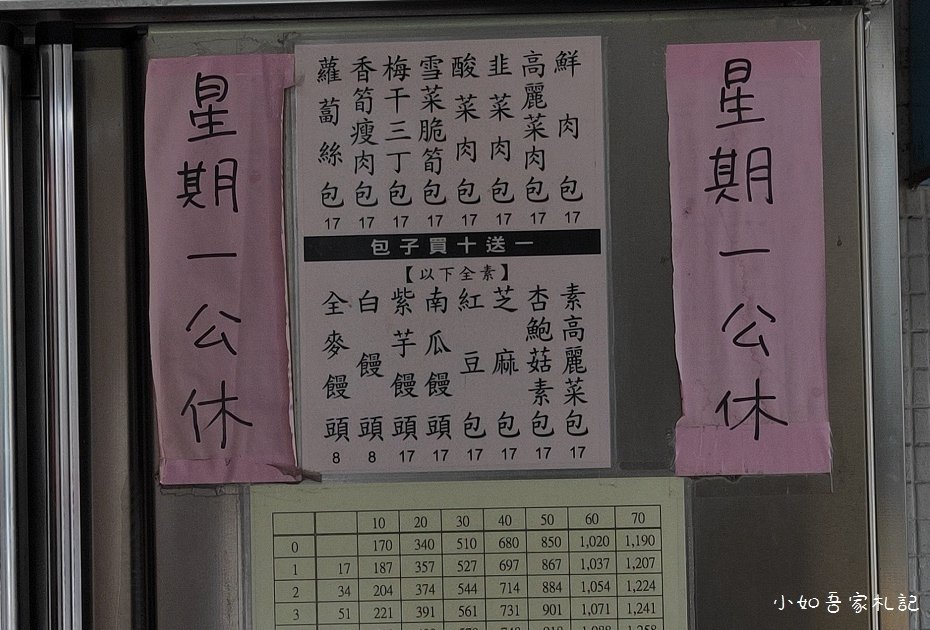 星期一公休
鮮肉包 17
高麗菜肉包 17
韭菜肉包 17
酸菜肉包 17
雪菜脆筍包 17
梅干三丁包 17
香筍瘦肉包 17
蘿蔔絲包 17
包子買十送一
【以下全素】
素高麗菜包 17
杏鮑菇素包 17
芝麻包 17
紅豆包 17
南瓜饅頭 17
紫芋饅頭 17
白饅頭 8
全麥饅頭 8
星期一公休
10 20 30 40 50 60 70
0 170 340 510 680 850 1,020 1,190
1 17 187 357 527 697 867 1,037 1,207
2 34 204 374 544 714 884 1,054 1,224
3 51 221 391 561 731 901 1,071 1,241
小如吾家札記